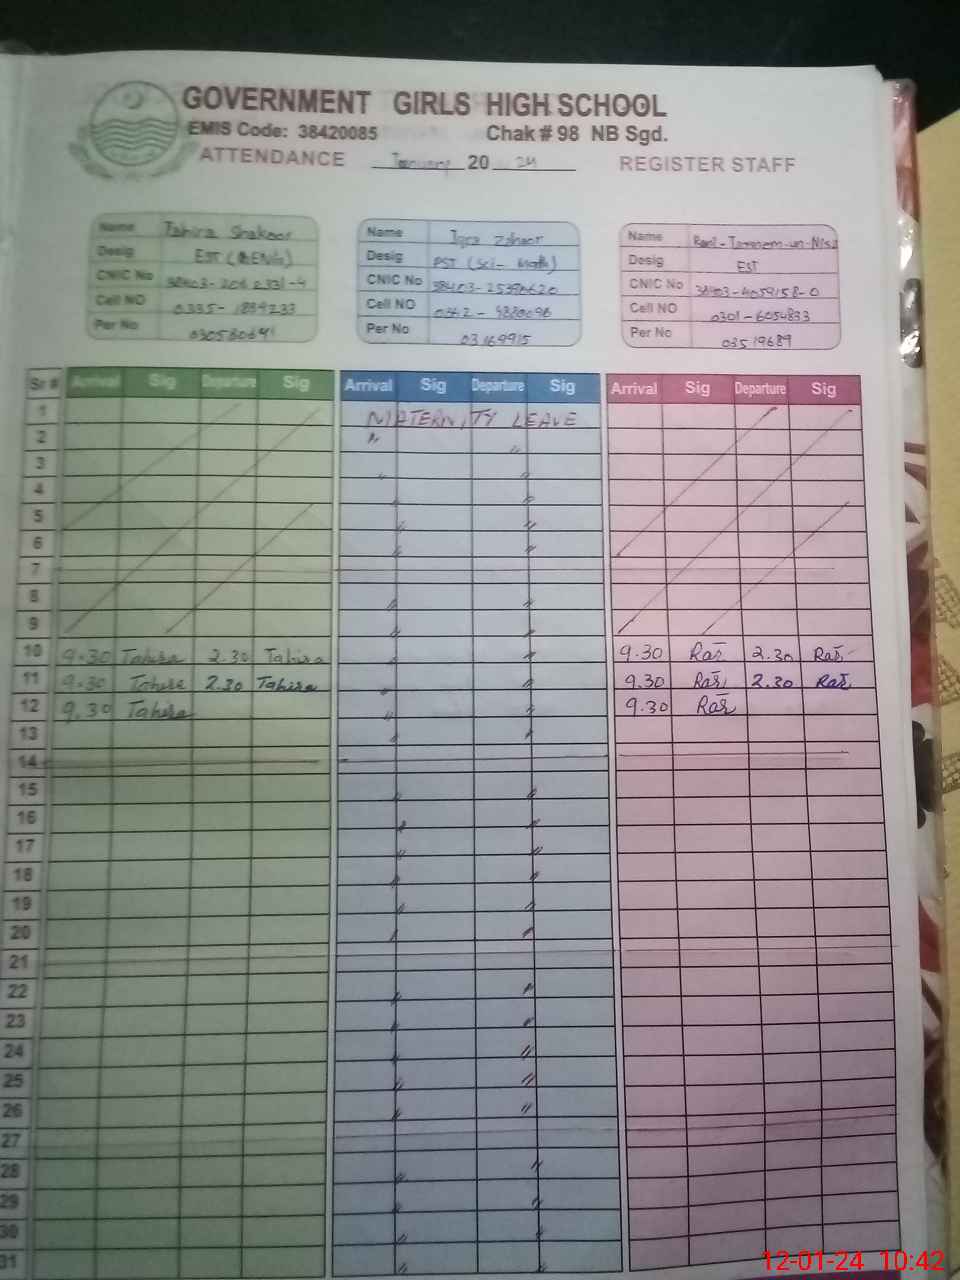 GOVERNMENT GIRLS HIGH SCHOOL
EMIS Code: 38420085 Chak # 98 NB Sgd.
ATTENDANCE January 20 24 REGISTER STAFF
Name Tahira Shakoor
Desig EST
CNIC No
Cell NO 0335-1834233
Per No
Name Iqra Zahoor
Desig PST (Sci- Math)
CNIC No 38403-25390620
Cell NO
Per No 03169915
Name
Desig EST
CNIC No 38403-4059158-0
Cell NO 0301-6054833
Per No 03519689
Sr # Arrival Sig Departure Sig Arrival Sig Departure Sig Arrival Sig Departure Sig
1 MATERNITY LEAVE
2 〃 〃
3 〃 〃
4 〃 〃
5 〃 〃
6 〃 〃
7
8 〃 〃
9 〃 〃
10 9.30 Tahira 2.30 Tahira 〃 9.30 Rafi 2.30 Rafi
11 9.30 Tahira 2.30 Tahira 〃 〃 9.30 Rafi 2.30 Rafi
12 9.30 Tahira 〃 〃 9.30 Rafi
13 〃 〃
14
15 〃 〃
16 〃 〃
17 〃 〃
18 〃 〃
19 〃 〃
20 〃 〃
21
22 〃 〃
23 〃 〃
24 〃 〃
25 〃 〃
26 〃 〃
27
28 〃 〃
29 〃 〃
30 〃 〃
31 〃 〃
12-01-24 10:42